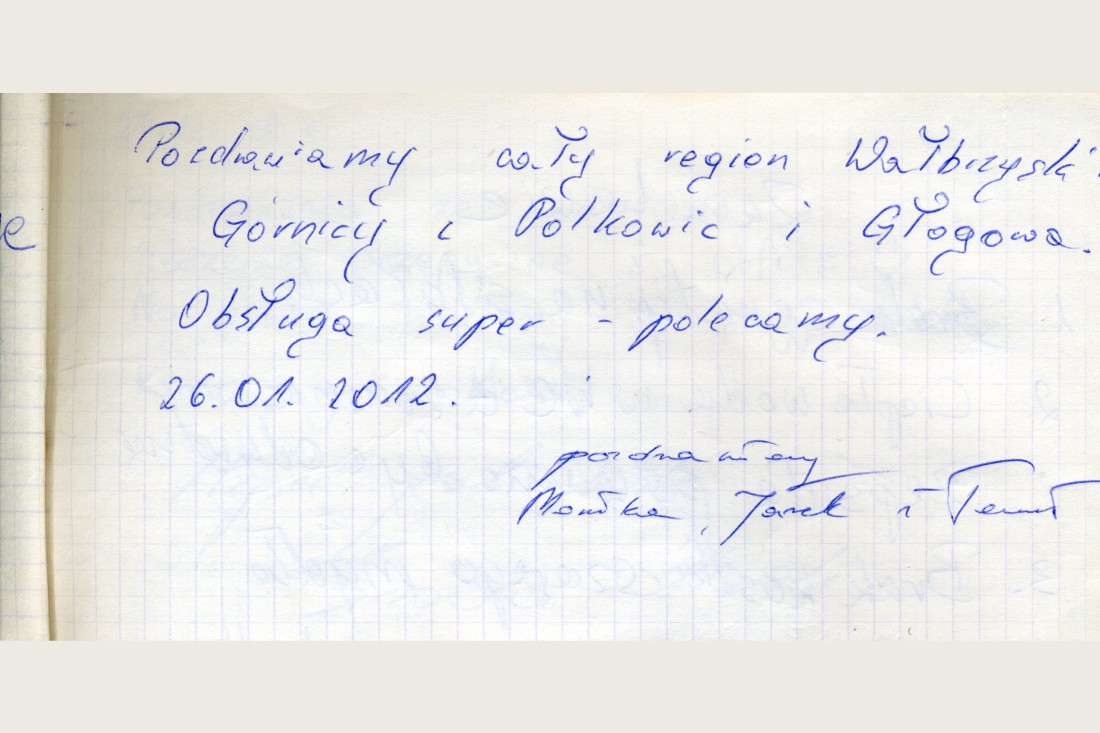 Pozdrawiamy cały region Wałbrzyski.
Górnicy z Polkowic i Głogowa.
Obsługa super - polecamy.
26.01.2012.
pozdrawiamy
Monika, Jarek i